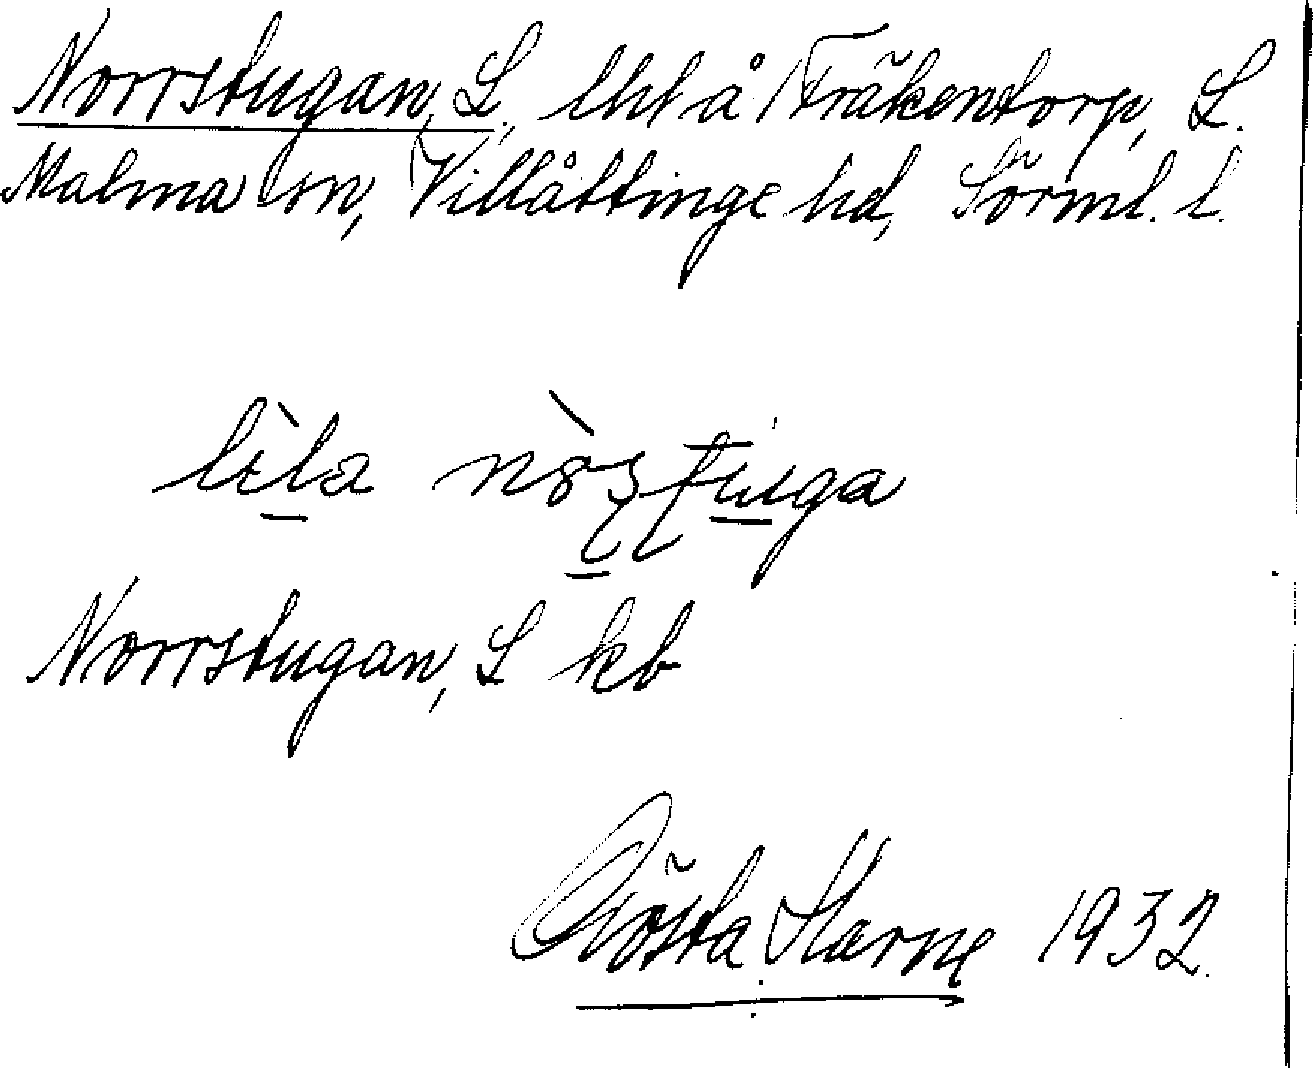 Norrstugan, L., lht å Fräkentorp, L.
Malma sn, Villåttinge hd, Sörml. l.
Norrstugan, L kb
Gösta Harne 1932.